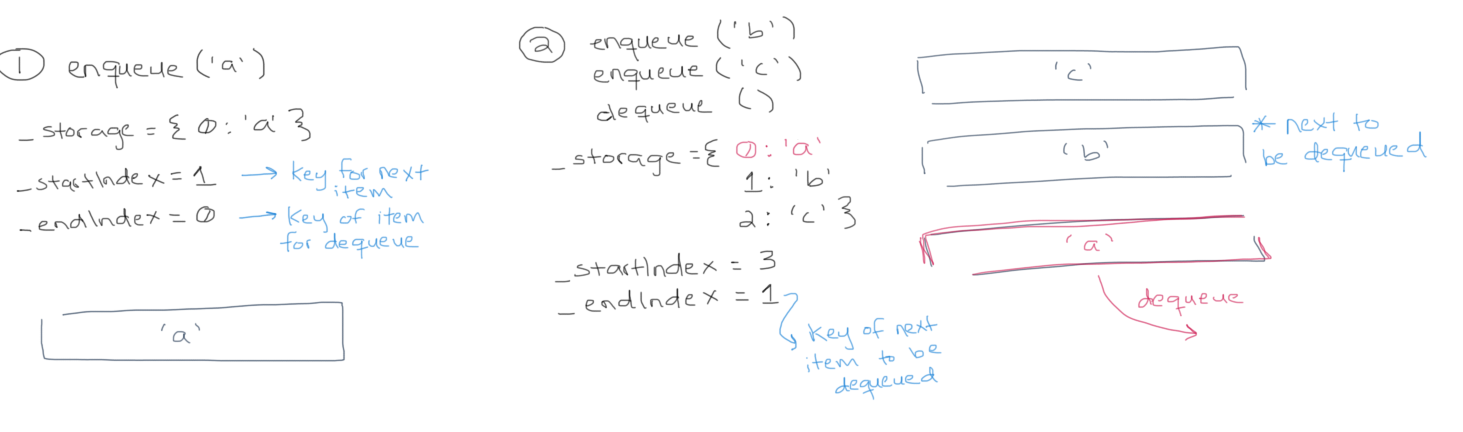 ① enqueue ('a')
_storage = { 0: 'a' }
_startIndex = 1 → key for next
item
_endIndex = 0 → key of item
for dequeue
'a'
② enqueue ('b')
enqueue ('c')
dequeue ()
_storage = { 0: 'a'
1: 'b'
2: 'c' }
_startIndex = 3
_endIndex = 1
key of next
item to be
dequeued
'c'
'b'
* next to
be dequeued
'a'
dequeue